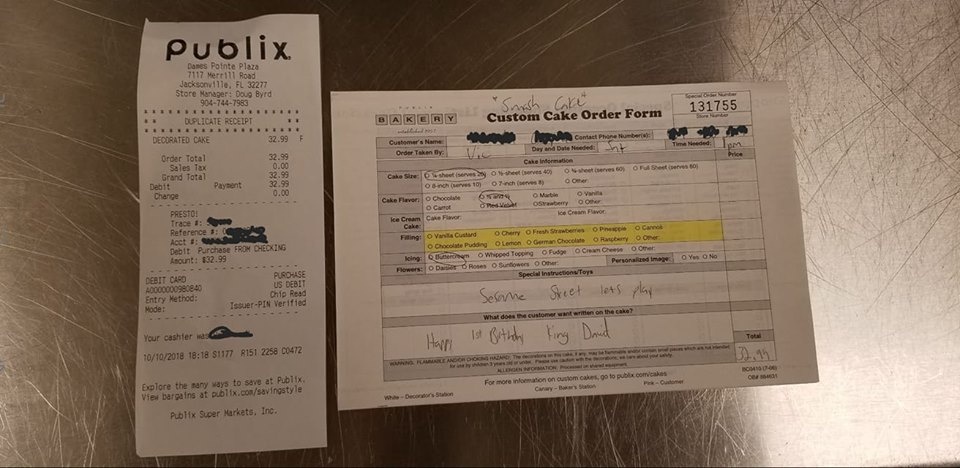 Publix.
Dames Pointe Plaza
7117 Merrill Road
Jacksonville, FL 32277
Store Manager: Doug Byrd
904-744-7983
DUPLICATE RECEIPT
DECORATED CAKE 32.99 F
Order Total 32.99
Sales Tax 0.00
Grand Total 32.99
Debit Payment 32.99
Change 0.00
PRESTO:
Trace #:
Reference #:
Acct #:
Debit Purchase FROM CHECKING
Amount: $32.99
DEBIT CARD PURCHASE
A0000000980840 US DEBIT
Entry Method: Chip Read
Mode: Issuer-PIN Verified
Your cashier was
10/10/2018 18:18 S1177 R151 2258 C0472
Explore the many ways to save at Publix.
View bargains at publix.com/savingstyle
Publix Super Markets, Inc.
"Smash Cake"
PUBLIX
BAKERY
Custom Cake Order Form
Special Order Number
131755
Store Number
Customer's Name: Contact Phone Number(s):
Order Taken By: Vic Day and Date Needed: Sat Time Needed: 1pm
Cake Information Price
Cake Size: ¼-sheet (serves 20) ½-sheet (serves 40) ¾-sheet (serves 60) Full Sheet (serves 80)
8-inch (serves 10) 7-inch (serves 8) Other:
Cake Flavor: Chocolate Marble Vanilla
Carrot Red Velvet Strawberry Other:
Ice Cream Cake: Cake Flavor: Ice Cream Flavor:
Filling: Vanilla Custard Cherry Fresh Strawberries Pineapple Cannoli
Chocolate Pudding Lemon German Chocolate Raspberry Other:
Icing: Buttercream Whipped Topping Fudge Cream Cheese Other:
Flowers: Daisies Roses Sunflowers Other: Personalized Image: Yes No
Special Instructions/Toys
Sesame Street lets play
What does the customer want written on the cake?
Happy 1st Birthday King David
Total
32.99
WARNING: FLAMMABLE AND/OR CHOKING HAZARD: The decorations on this cake, if any, may be flammable and/or contain small pieces which are not intended
for use by children 3 years old or under. Please use caution with the decorations; we care about your safety.
ALLERGEN INFORMATION: Processed on shared equipment.
For more information on custom cakes, go to publix.com/cakes
White – Decorator's Station Canary – Baker's Station Pink – Customer